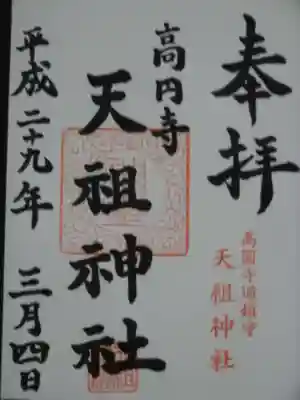 奉拝
高円寺
天祖神社
平成二十九年 三月四日
高圓寺旧鎮守
天祖神社